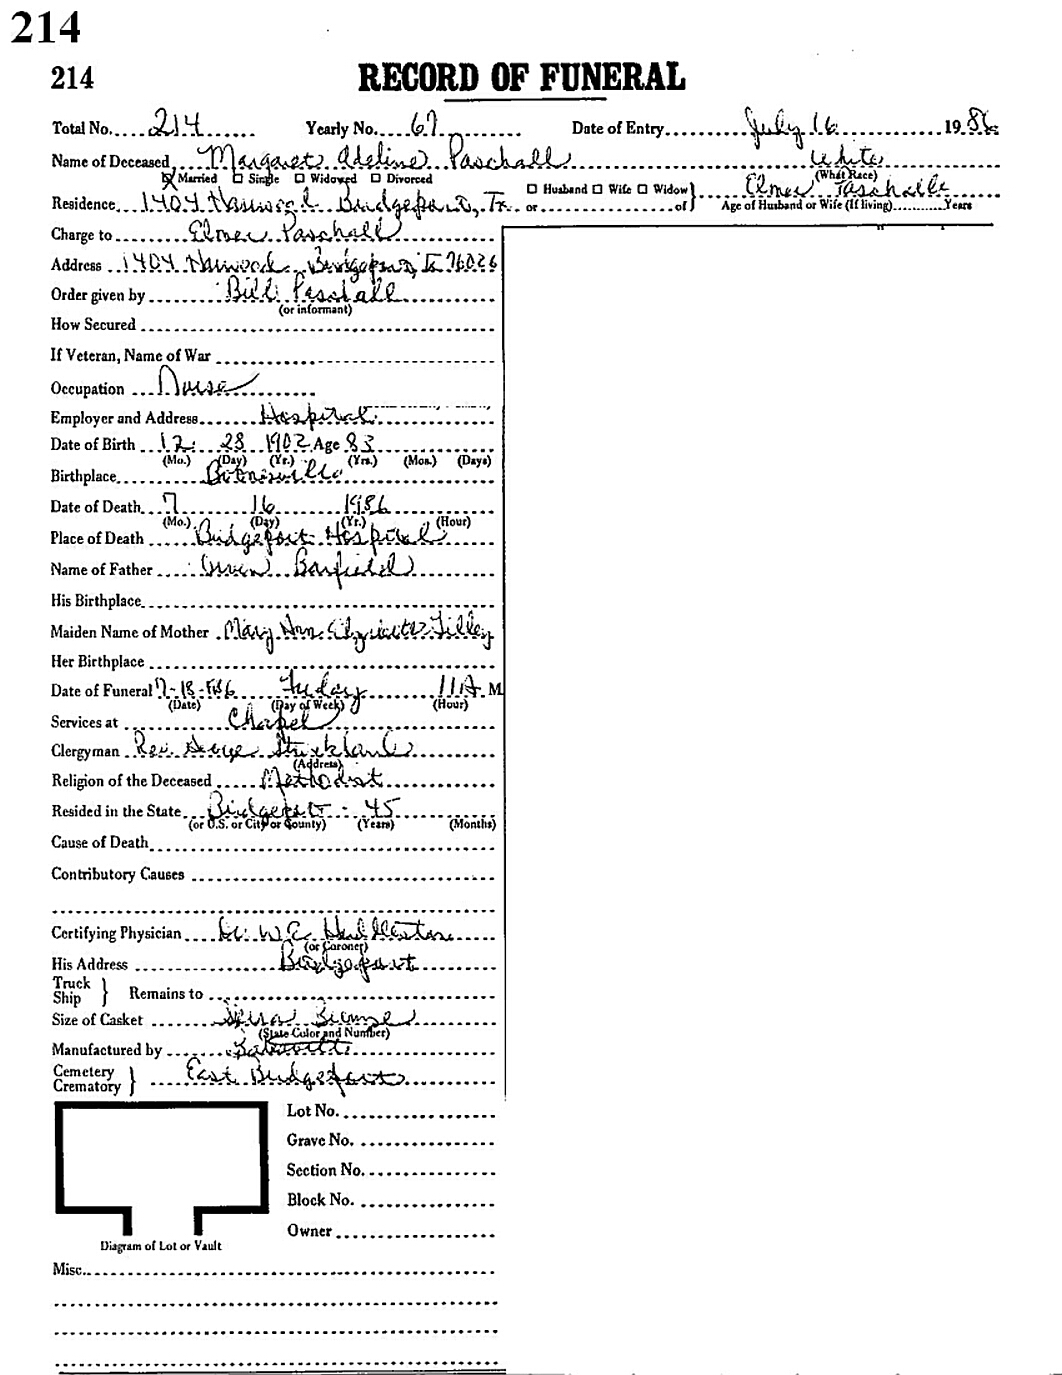 214
214 RECORD OF FUNERAL
Total No. 214 Yearly No. 67 Date of Entry July 16 1986
Name of Deceased Margaret Adeline Paschall White
☒ Married ☐ Single ☐ Widowed ☐ Divorced (What Race)
Residence 1404 Bridgeport, Tx. ☐ Husband ☐ Wife ☐ Widow or of } Elmer Paschall Age of Husband or Wife (If living) Years
Charge to Elmer Paschall
Address 1404 Bridgeport, Tx 76026
Order given by Bill Paschall
(or informant)
How Secured
If Veteran, Name of War
Occupation Nurse
Employer and Address Hospital
Date of Birth 12 28 1902 Age 83
(Mo.) (Day) (Yr.) (Yrs.) (Mos.) (Days)
Birthplace
Date of Death 7 16 1986
(Mo.) (Day) (Yr.) (Hour)
Place of Death Bridgeport Hospital
Name of Father Barfield
His Birthplace
Maiden Name of Mother Mary Ann Elizabeth Tilley
Her Birthplace
Date of Funeral 7-18-1986 Friday 11 A M
(Date) (Day of Week) (Hour)
Services at Chapel
Clergyman Rev. Strickland
(Address)
Religion of the Deceased Methodist
Resided in the State Bridgeport - 45
(or U.S. or City or County) (Years) (Months)
Cause of Death
Contributory Causes
Certifying Physician Dr. W E Huddleston
(or Coroner)
His Address Bridgeport
Truck Ship } Remains to
Size of Casket
(State Color and Number)
Manufactured by Batesville
Cemetery Crematory } East Bridgeport
Lot No.
Grave No.
Section No.
Block No.
Owner
Diagram of Lot or Vault
Misc.